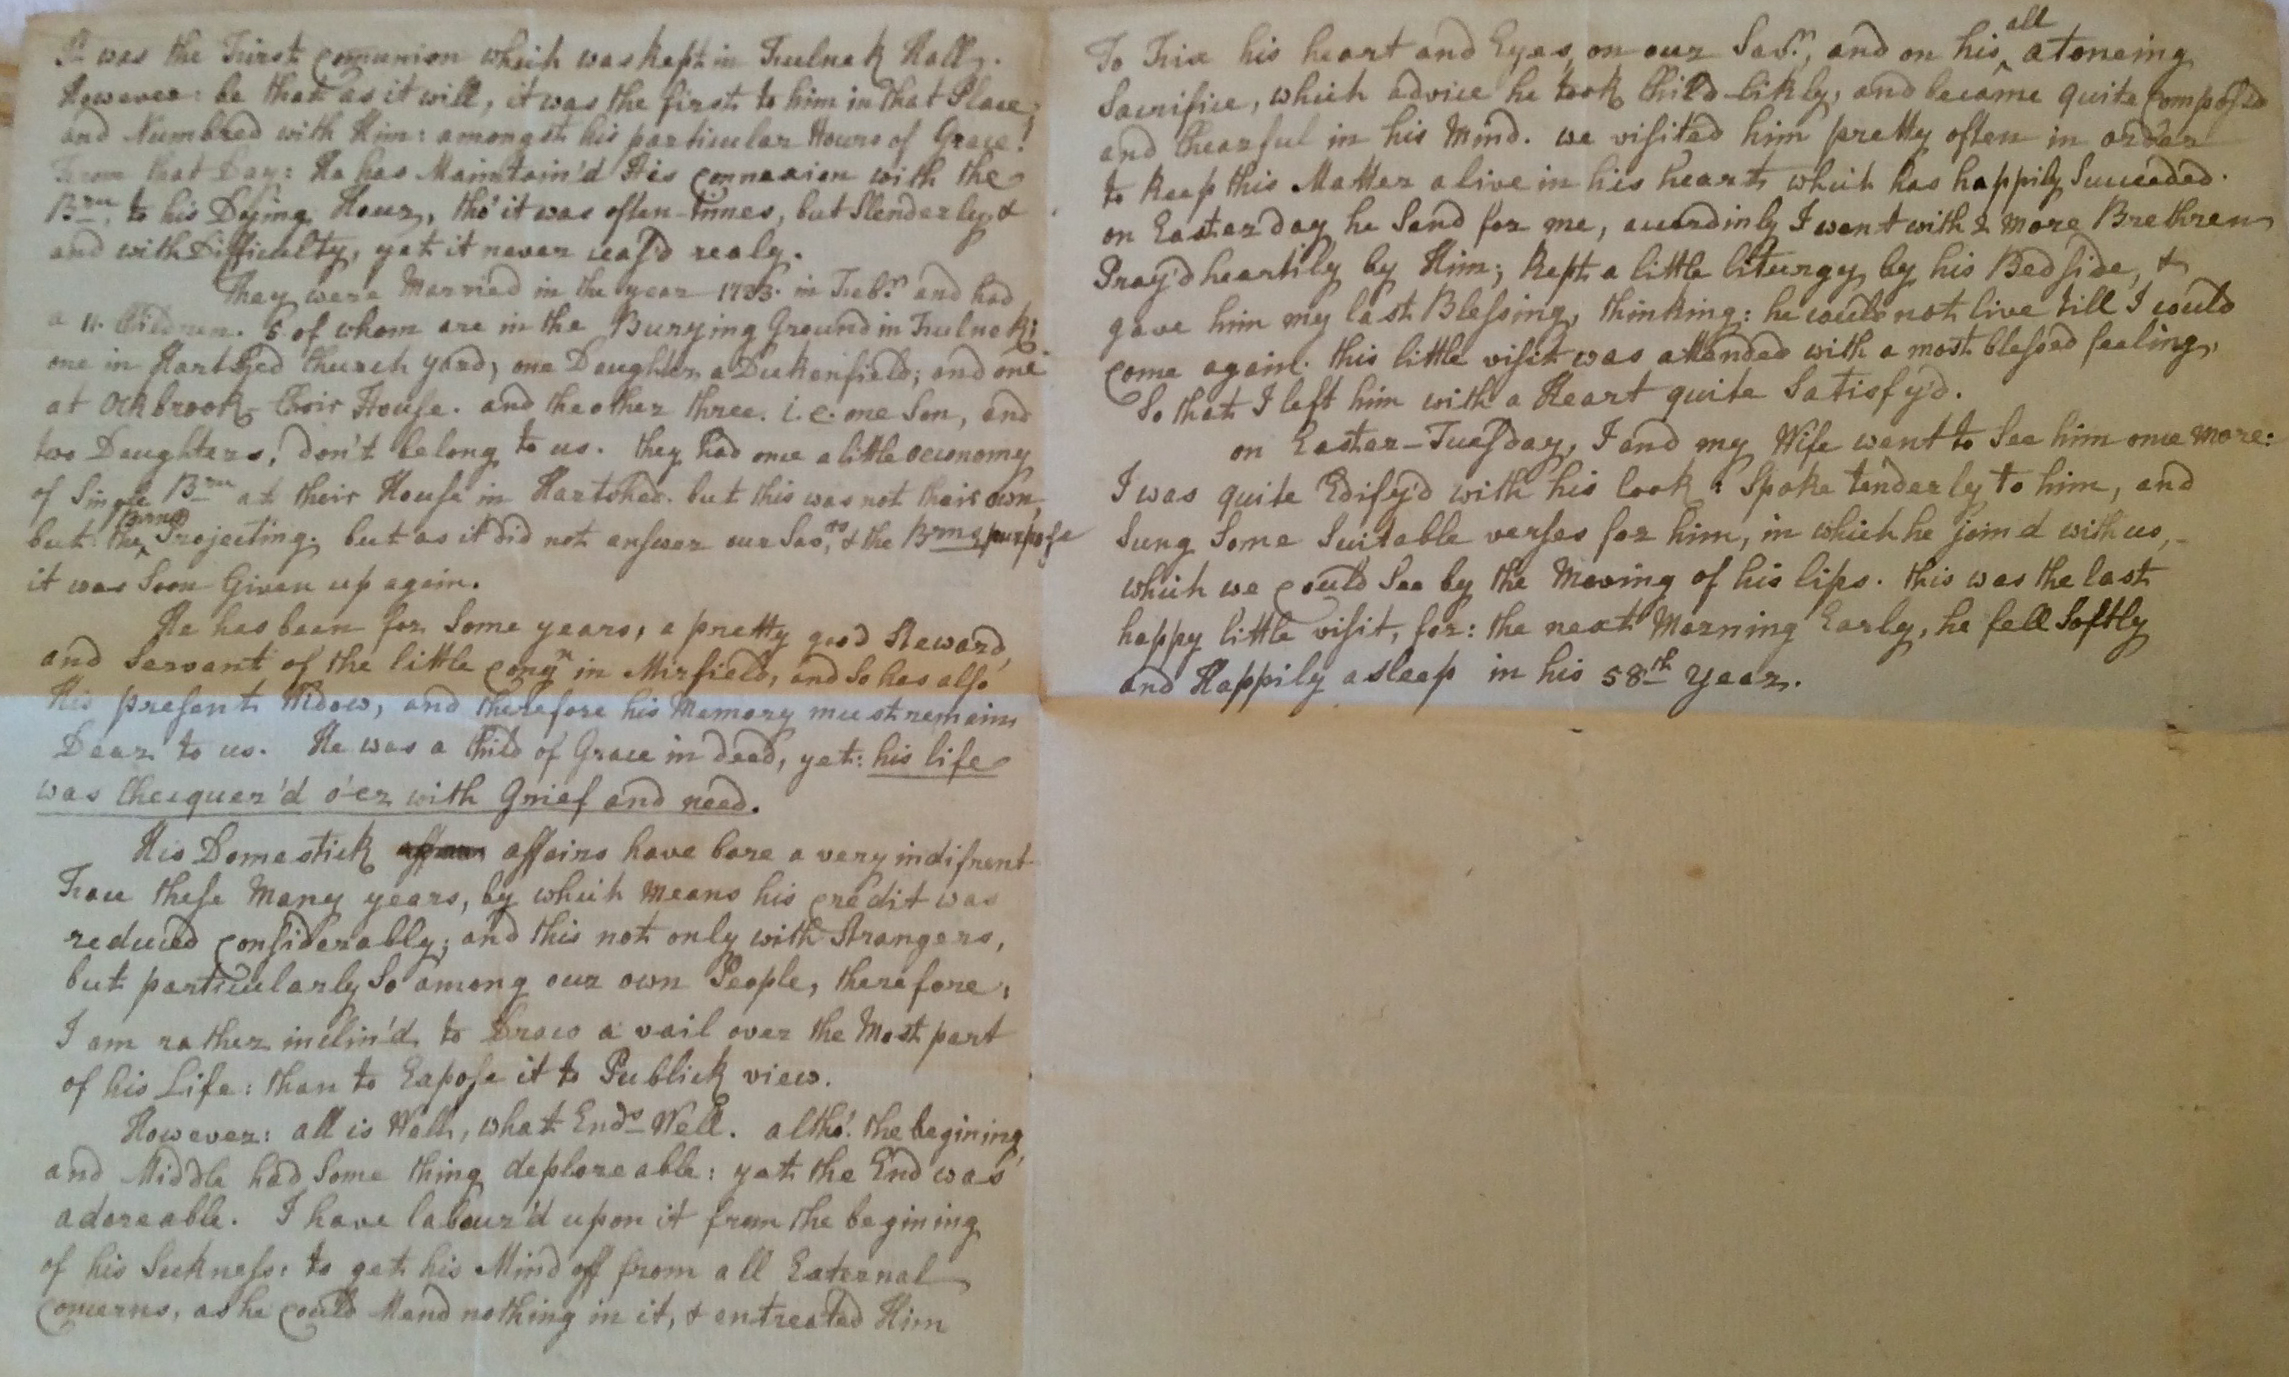 It was the First Comunion which was kept in Fulneck Hall.
However: be that as it will, it was the first to him in that Place,
and Numbred with Him: amongst his particular Hours of Grace!
From that Day: He has Maintain'd His Connexion with the
Brn. to his Dying Hour, tho' it was often-times, but Slenderley &
and with Difficulty, yet it never ceas'd realy.
They were Married in the year 1733. in Febr. and had
a 11. Children. 5 of whom are in the Burying Ground in Fulnek;
one in Hartshed Church yard, one Daughter a Dukenfield; and one
at Ockbrook Choir House. and the other three. i.e. one Son, and
two Daughters, don't belong to us. they had once a little oeconomy
of Single Brn at their House in Hartshed. but this was not their own,
but the Brns Projecting. but as it did not answer our Savrs, & the Brns purpose
it was Soon Given up again.
He has been for Some years, a pretty good Steward,
and Servant of the little Congn in Mirfield, and So has also
His present Widow, and therefore his Memory must remain
Dear to us. He was a Child of Grace in deed, yet: his life
was Checquer'd o'er with Grief and need.
His Domestick affairs have bore a very indifrent
Face these Many years, by which Means his credit was
reduced Considerably; and this not only with Strangers,
but particularly So among our own People, therefore,
I am rather inclin'd to Draw a vail over the Most part
of his Life: than to Expose it to Publick view.
However: all is Well, what Ends Well. altho' the begining,
and Middle had Some thing deploreable: yet the End was
adoreable. I have labour'd upon it from the begining
of his Sickness: to get his Mind off from all External
Concerns, as he Could Mend nothing in it, & entreated Him
To Fix his heart and Eyes, on our Savr, and on his all atoneing
Sacrifice, which advice he took Child-likly, and became quite Composed
and Chearful in his Mind. we visited him pretty often in order
to keep this Matter alive in his heart which has happily Succeeded.
on Easter day he Send for me, accordinly I went with 2 more Brethren
Pray'd heartily by Him; kept a little liturgy by his Bedside, &
gave him my last Blessing, thinking: he would not live till I could
Come again. this little visit was attended with a most blessed feeling,
So that I left him with a Heart quite Satisfy'd.
on Easter-Tuesday, I and my Wife went to See him once more:
I was quite Edify'd with his look: Spoke tenderly to him, and
Sung Some Suitable verses for him, in which he join'd with us,
which we Could See by the Moving of his lips. this was the last
happy little visit, for: the next Morning Early, he fell Softly
and Happily asleep in his 58th year.